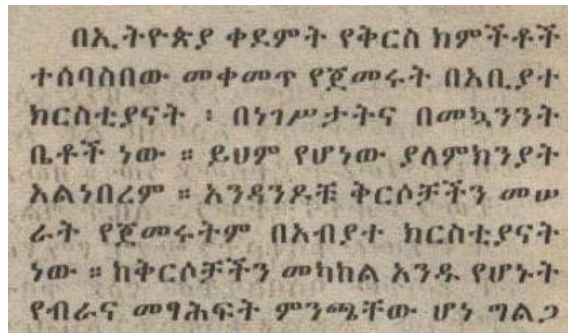 በኢትዮጵያ ቀደምት የቅርስ ክምችቶች
ተሰባስበው መቀመጥ የጀመሩት በአቢያተ
ክርስቲያናት ፡ በነገሥታትና በመኳንንት
ቤቶች ነው ። ይህም የሆነው ያለምክንያት
አልነበረም ። አንዳንዶቹ ቅርሶቻችን መሠ
ራት የጀመሩትም በአብያተ ክርስቲያናት
ነው ። ከቅርሶቻችን መካከል አንዱ የሆኑት
የብራና መፃሕፍት ምንጫቸው ሆነ ግልጋ